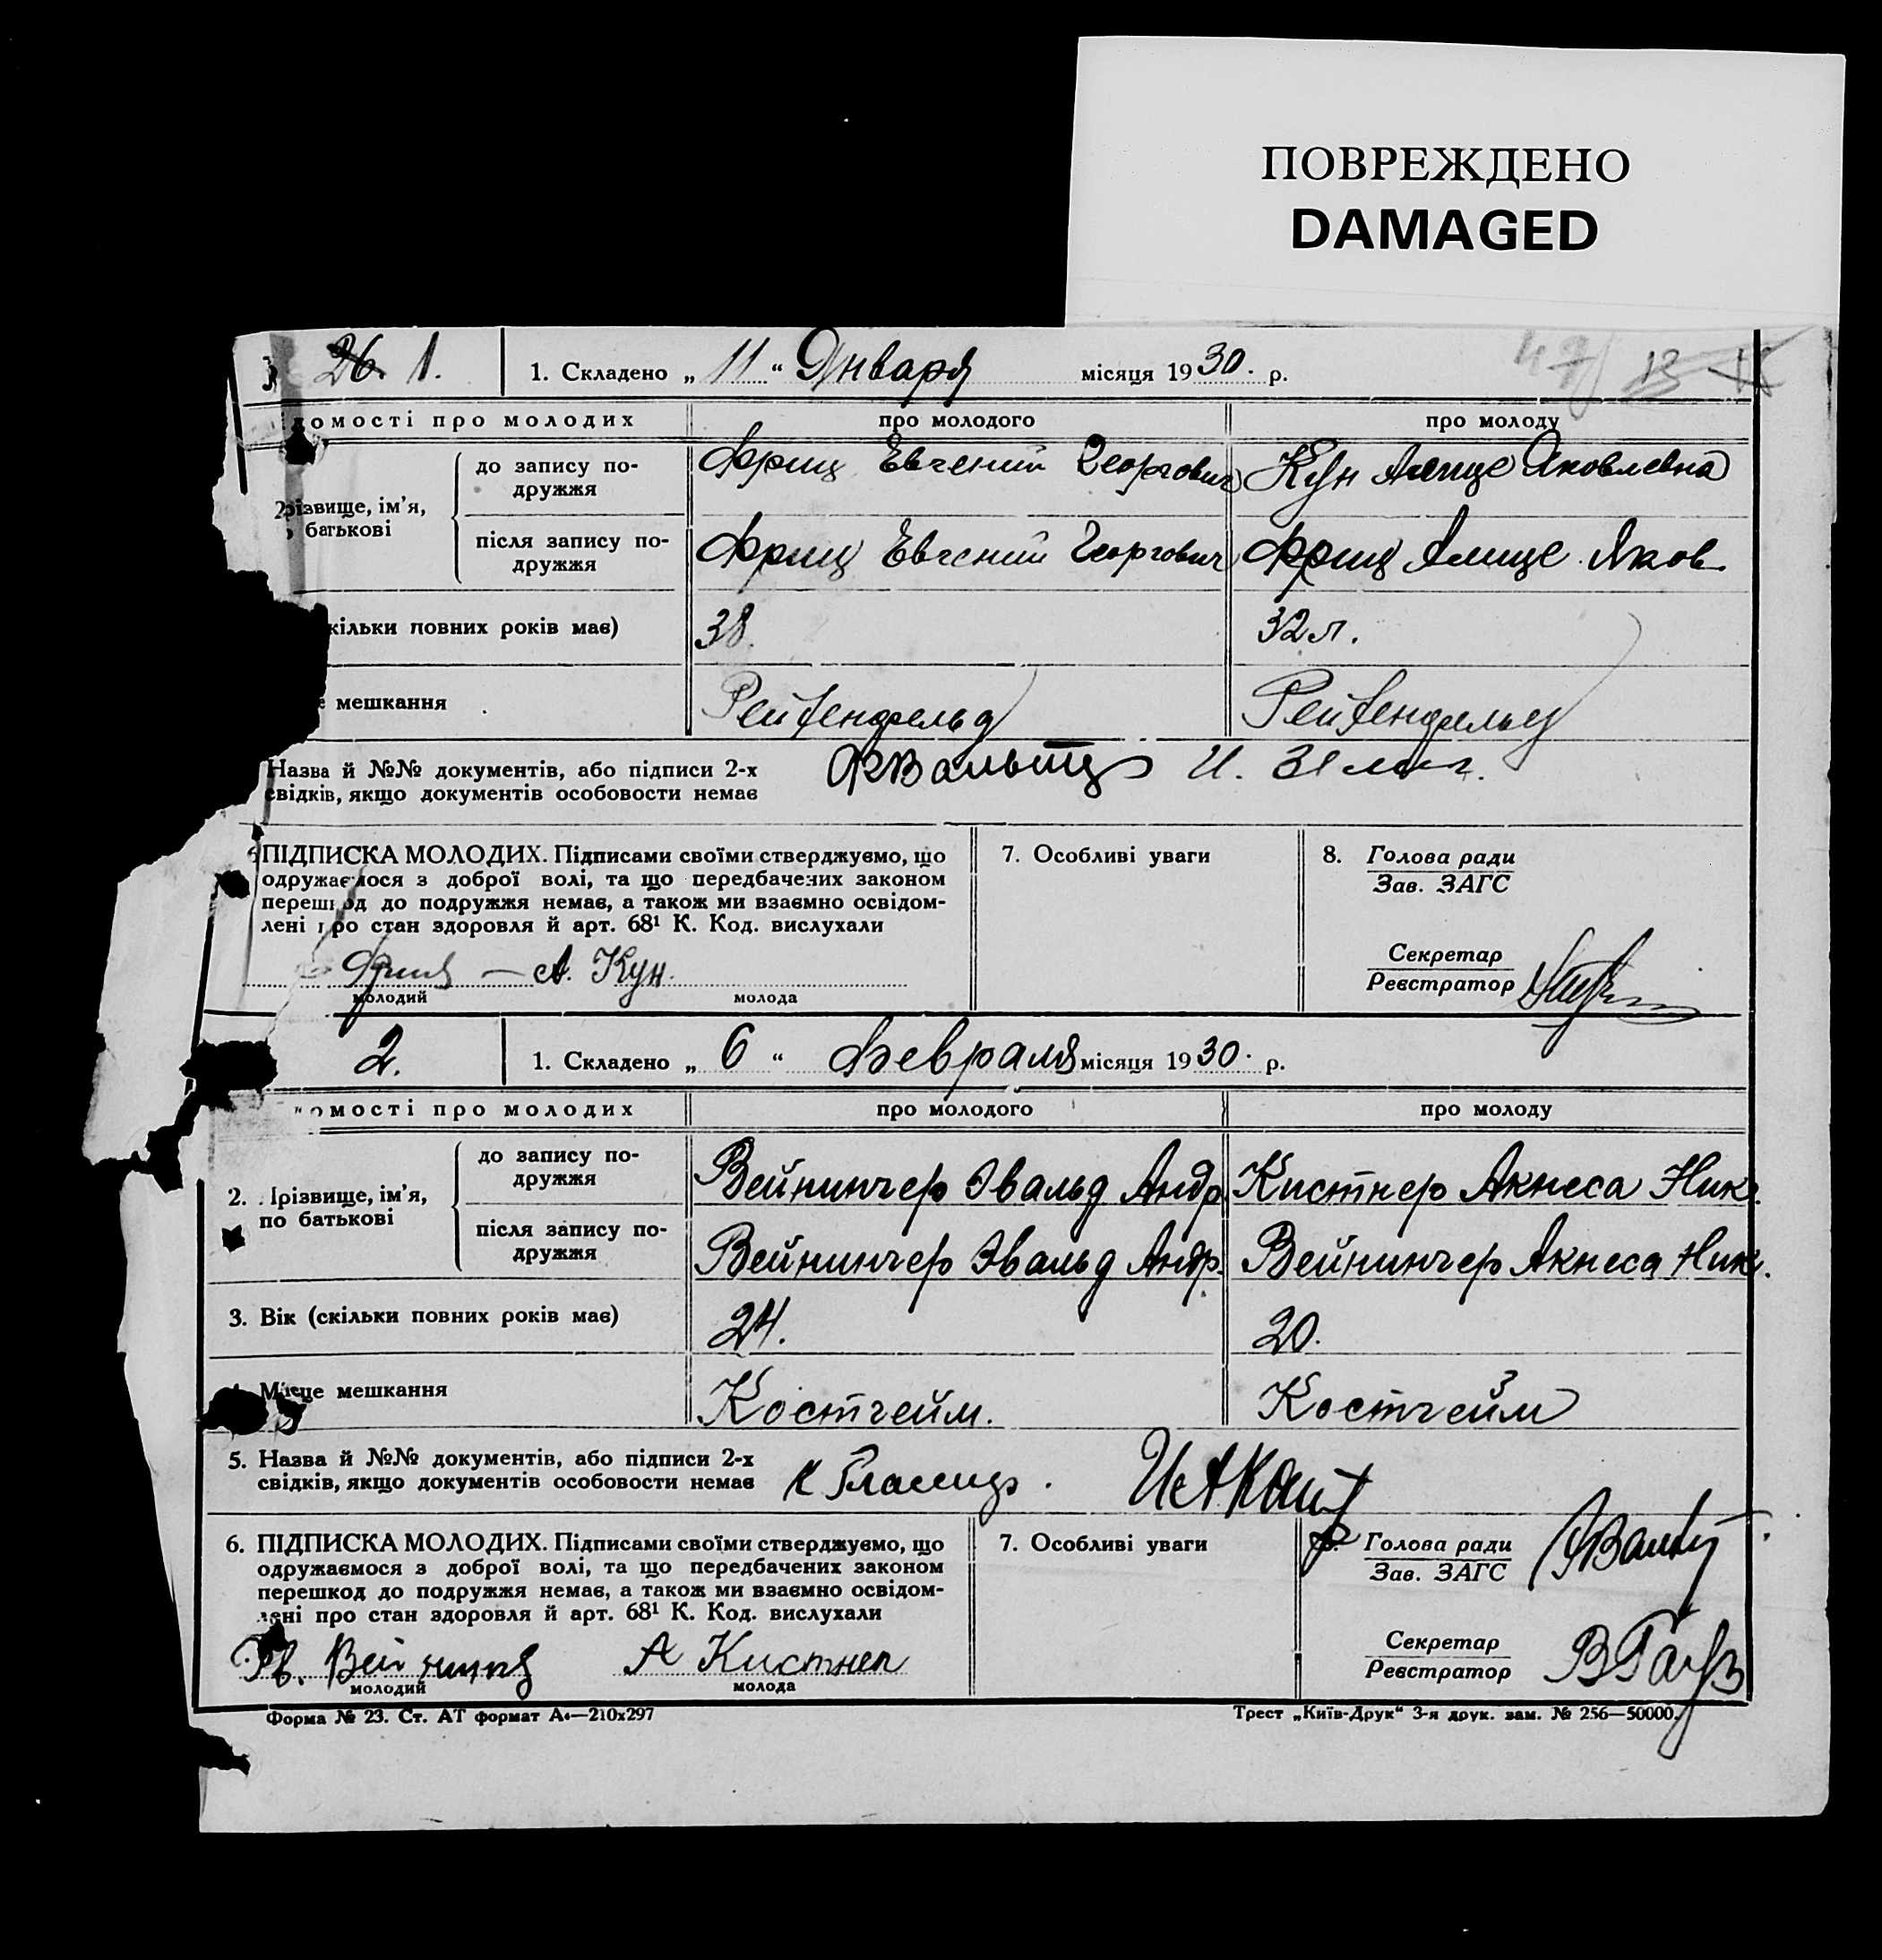 ПОВРЕЖДЕНО
DAMAGED
26. 1. 1. Складено „ 11 “ Января місяця 1930. р.
домості про молодих про молодого про молоду
2 різвище, ім’я, батькові
до запису подружжя Фриц Евгений Георгович Кун Алице Яковлевна
після запису подружжя Фриц Евгений Георгович Фриц Алице Яков.
кільки повних років має) 38. 32 л.
е мешкання Рейфенфельд Рейфенфельд
Назва й №№ документів, або підписи 2-х
свідків, якщо документів особовости немає
ПІДПИСКА МОЛОДИХ. Підписами своїми стверджуємо, що
одружаємося з доброї волі, та що передбачених законом
перешкод до подружжя немає, а також ми взаємно освідом-
лені про стан здоровля й арт. 68¹ К. Код. вислухали
7. Особливі уваги
8. Голова ради
Зав. ЗАГС
Секретар
Реєстратор
Фриц — А. Кун.
молодий молода
2. 1. Складено „ 6 “ Февраля місяця 1930. р.
омості про молодих про молодого про молоду
2. Прізвище, ім’я,
по батькові
до запису подружжя Вейнингер Эвальд Андр. Кистнер Акнеса Ник.
після запису подружжя Вейнингер Эвальд Андр. Вейнингер Акнеса Ник.
3. Вік (скільки повних років має) 24. 20.
4. Місце мешкання Костгейм. Костгейм
5. Назва й №№ документів, або підписи 2-х
свідків, якщо документів особовости немає
6. ПІДПИСКА МОЛОДИХ. Підписами своїми стверджуємо, що
одружаємося з доброї волі, та що передбачених законом
перешкод до подружжя немає, а також ми взаємно освідом-
лені про стан здоровля й арт. 68¹ К. Код. вислухали
7. Особливі уваги
Голова ради
Зав. ЗАГС
Секретар
Реєстратор
А Кистнер
молодий молода
Форма № 23. Ст. АТ формат А4—210х297 Трест „Київ-Друк“ 3-я друк. зам. № 256—50000.